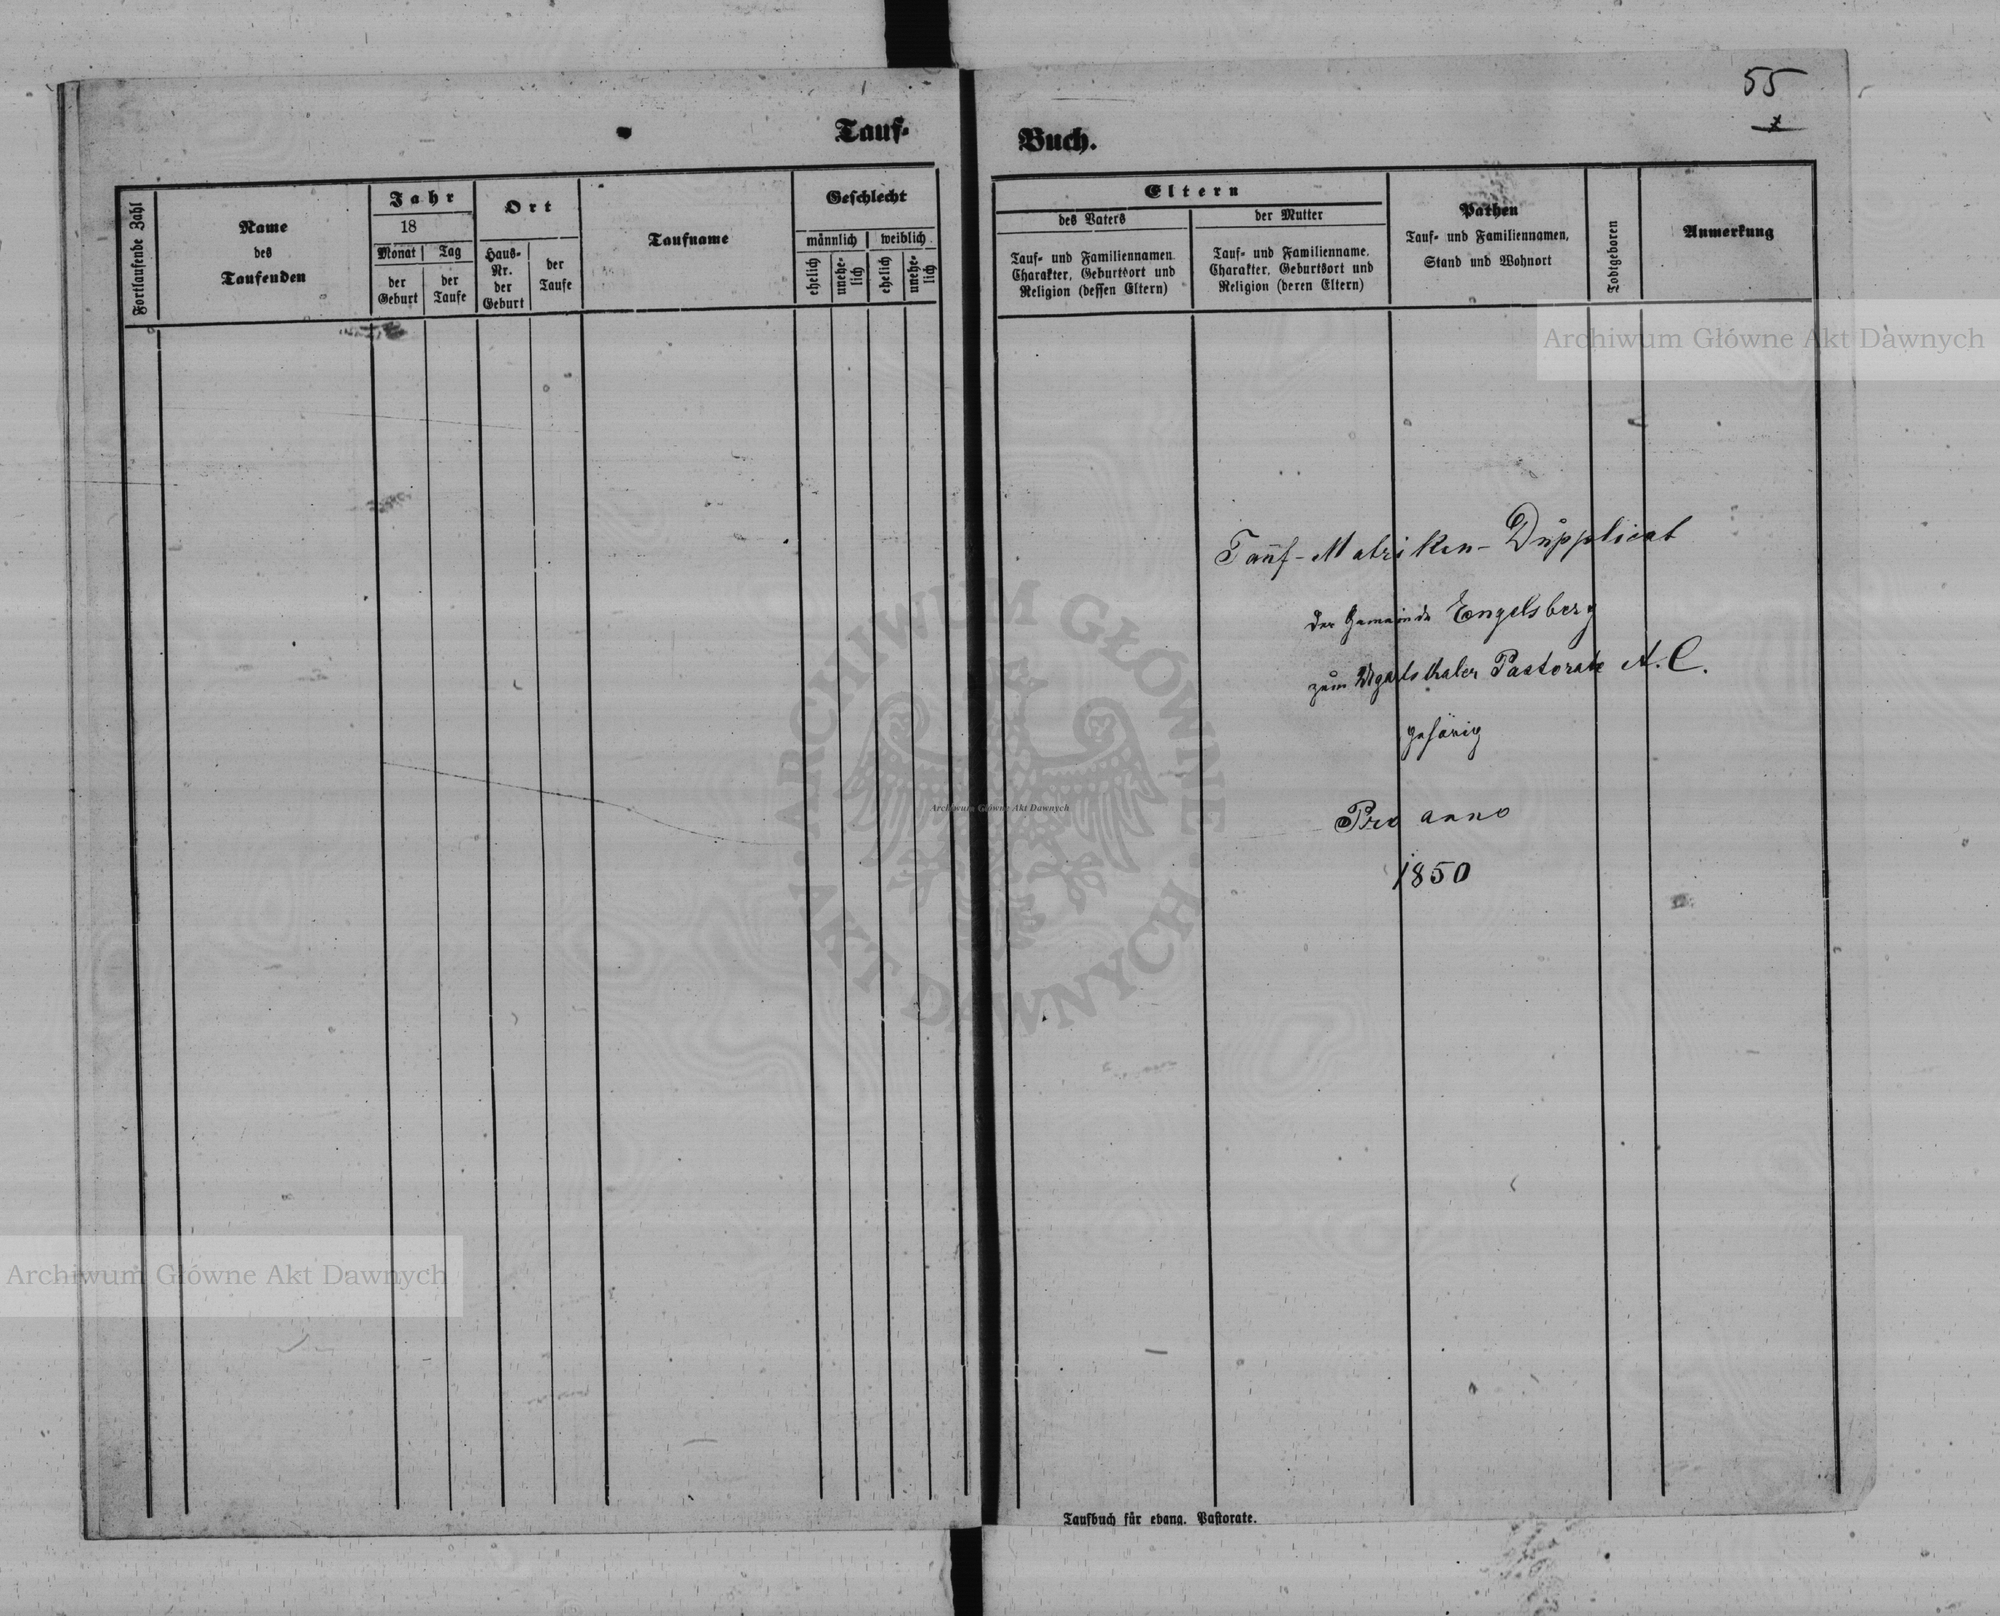 55
Tauf-
Buch.
Fortlaufende Zahl
Name
des
Taufenden
Jahr
18
Monat
Tag
der
Geburt
der
Taufe
Ort
Haus-
Nr.
der
Geburt
der
Taufe
Taufname
Geschlecht
männlich
weiblich
ehelich
unehe-
lich
ehelich
unehe-
lich
Eltern
des Vaters
der Mutter
Tauf- und Familiennamen
Charakter, Geburtsort und
Religion (dessen Eltern)
Tauf- und Familienname,
Charakter, Geburtsort und
Religion (deren Eltern)
Pathen
Tauf- und Familiennamen,
Stand und Wohnort
Todtgeboren
Anmerkung
Archiwum Główne Akt Dawnych
Tauf-Matriken-Dupplicat
der Gemeinde Engelsberg
zum Ugartsthaler Pastorate A. C.
gehörig
Pro anno
1850
ARCHIWUM GŁÓWNE
AKT DAWNYCH
Archiwum Główne Akt Dawnych
Archiwum Główne Akt Dawnych
Taufbuch für evang. Pastorate.